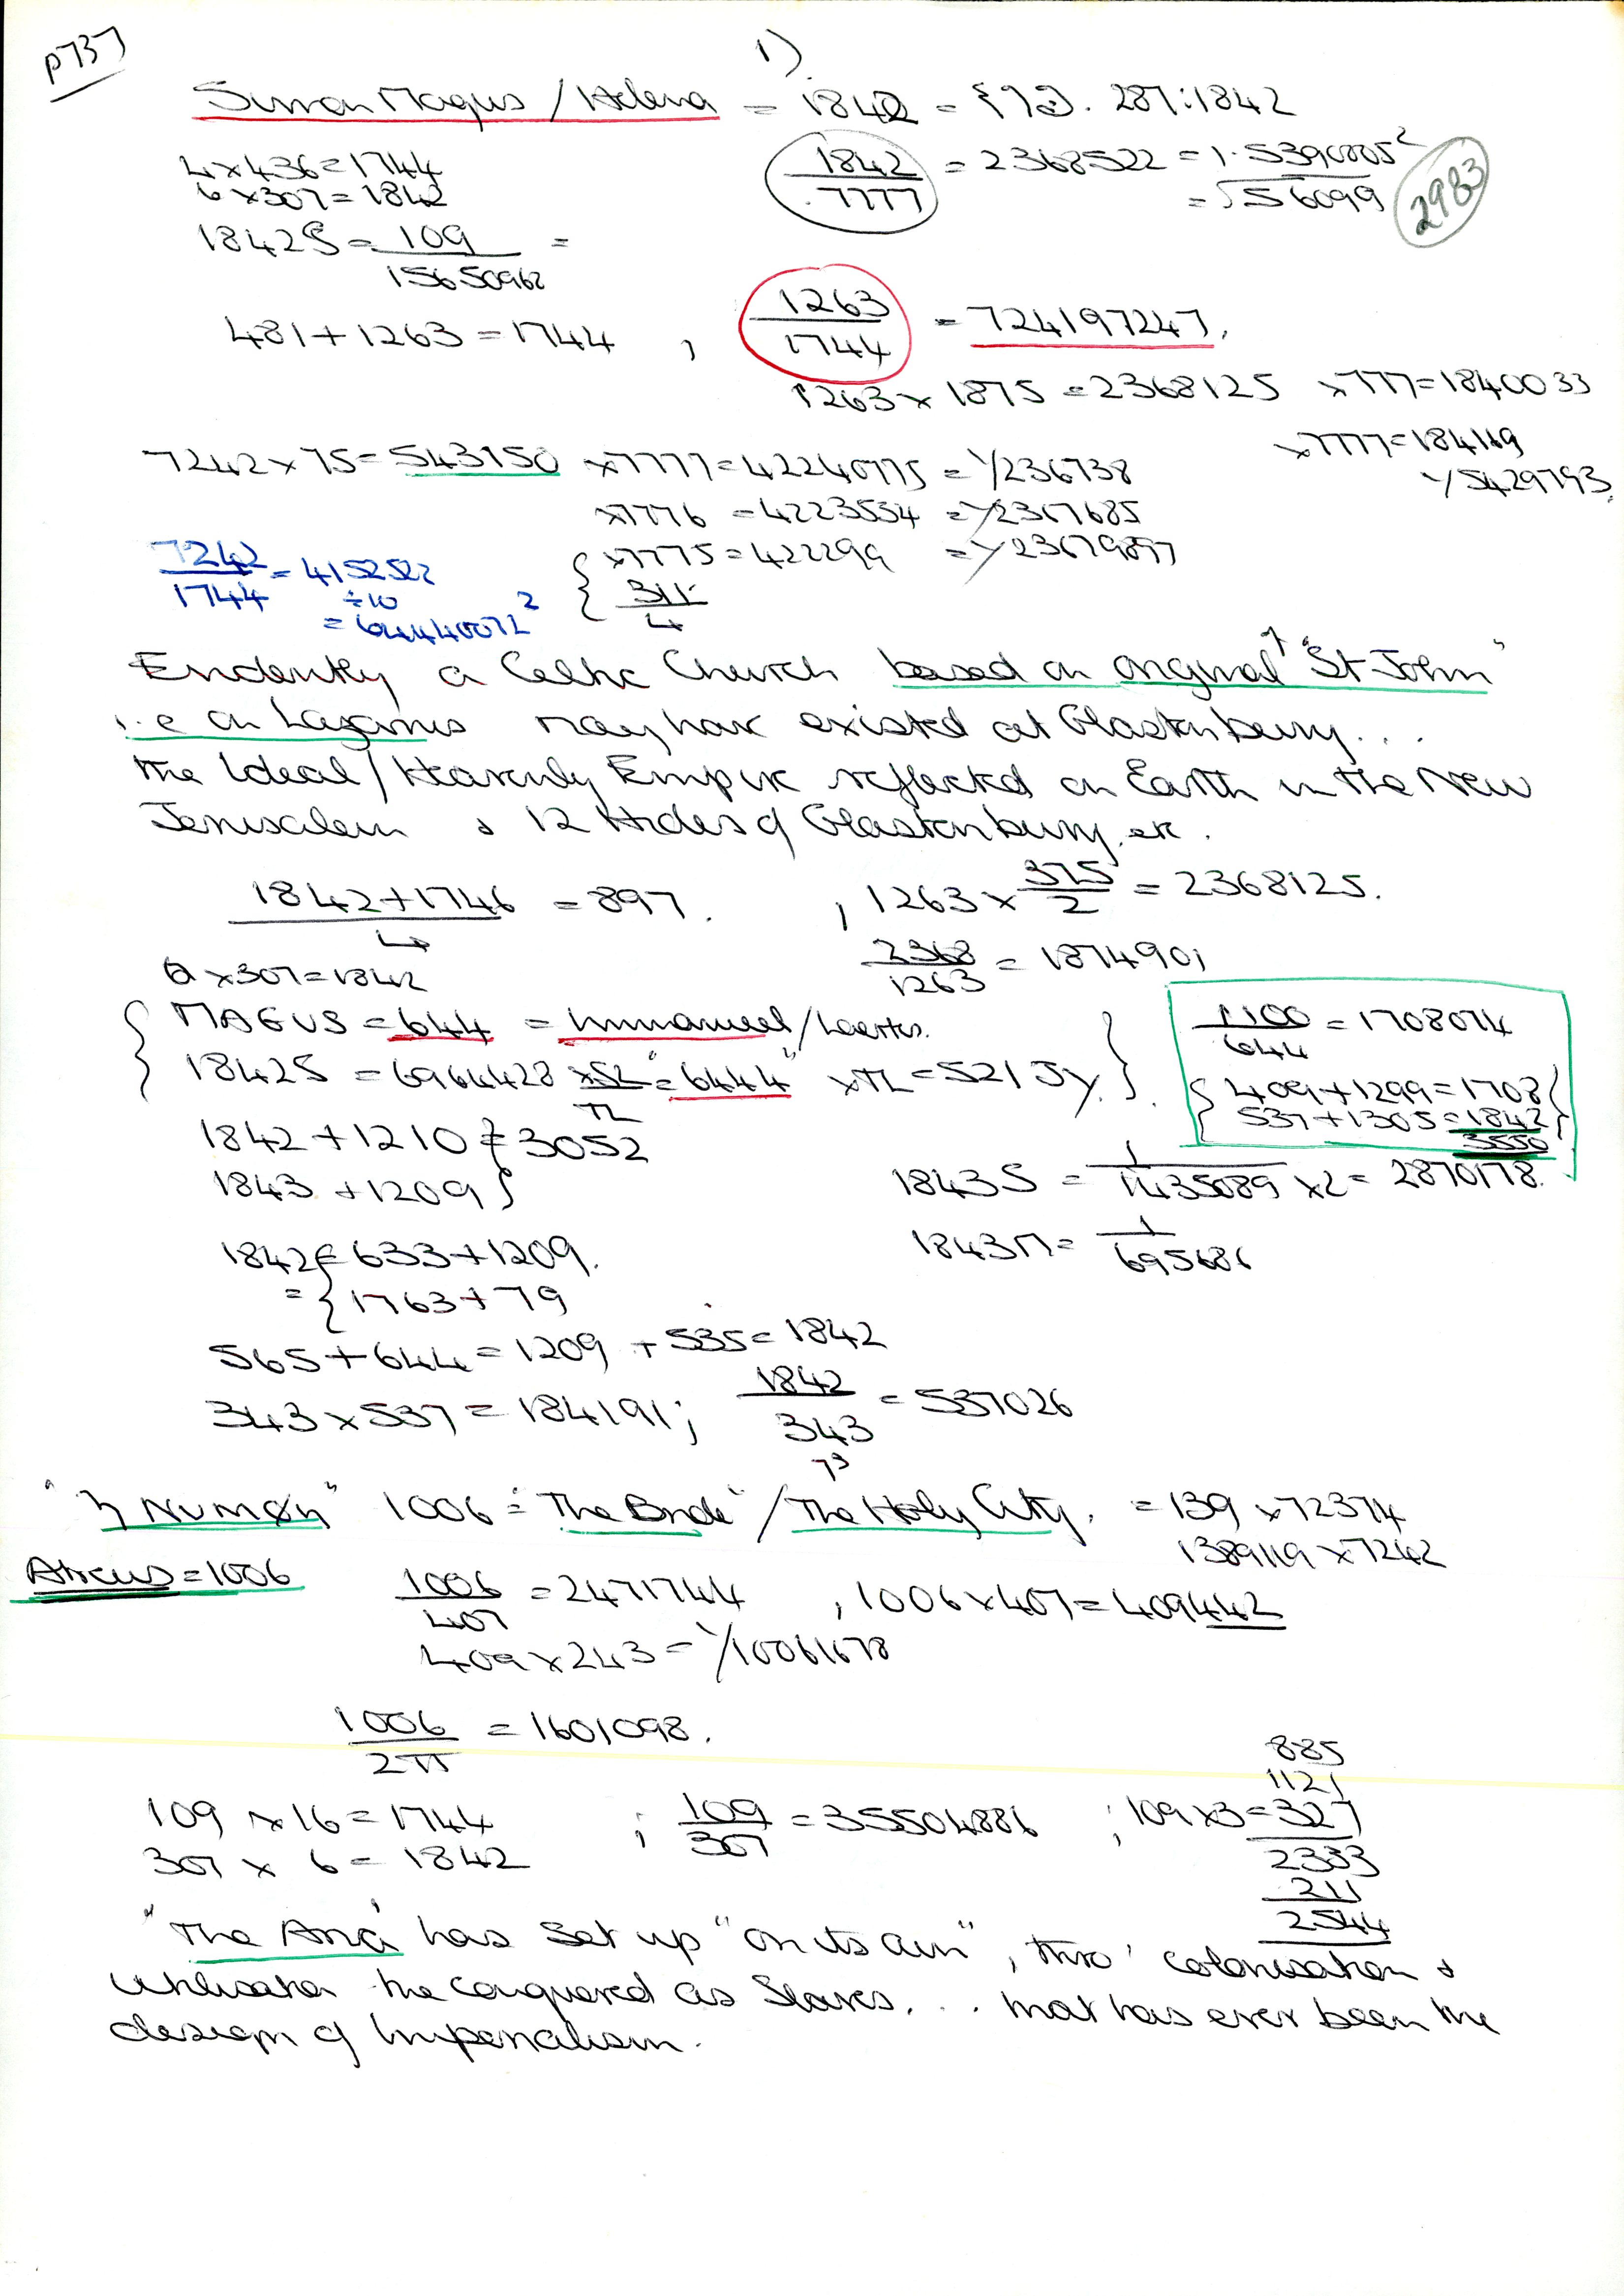 p737
1)
Simon Magus / Helena = 1842 = 287:1842
4 x 436 = 1744
6 x 307 = 1842
1842/7777 = 2368522 = 1.5390005²
= √56099
2983
1842S = 109/15650962 =
481 + 1263 = 1744 , 1263/1744 = 724197247.
1263 x 1875 = 2368125 x777 = 1840033
x7777 = 184169
1/5429793
7242 x 75 = 543150 x7777 = 42240775 = 1/236738
x7776 = 4223534 = 1/2367685
{ x7775 = 422299 = 1/23679897
311/4
7242/1744 = 4152522
÷10
= 644440072²
Evidently a Celtic Church based on original "St John"
i.e on Lazarus may have existed at Glastonbury...
the Ideal / Heavenly Empire reflected on Earth in the New
Jerusalem & 12 Hides of Glastonbury, etc.
(1842 + 1746)/4 = 897. , 1263 x 375/2 = 2368125.
6 x 307 = 1842
2368/1263 = 1874901
{ MAGUS = 644 = Immanuel / Laertes.
1842S = 6964428 x52/72 = "6444" x72 = 521 Jy. }
1100/644 = 1708074
{ 409 + 1299 = 1708 }
{ 537 + 1305 = 1842 }
3550
1842 + 1210 } = 3052
1843 + 1209 }
1843S = 1/1435089 x2 = 2870178.
1843M = 1/695686
1842 = { 633 + 1209.
= { 1763 + 79
565 + 644 = 1209 + 535 = 1842
343 x 537 = 184191; 1842/343 = 537026
7³
"η Νυμφη" 1006 = "The Bride" / The Holy City. = 139 x 72374
1389119 x 7242
Atreus = 1006
1006/407 = 2471744 , 1006 x 407 = 409442
409 x 243 = 1/10061678
1006/2π = 1601098.
109 x 16 = 1744 ; 109/307 = 35504886 ; 109 x 3 = 327
307 x 6 = 1842
885
1121
2333
211
2544
"The Ana" has set up "on its own", thro' colonisation &
utilisation the conquered as Slaves... that has ever been the
design of Imperialism.